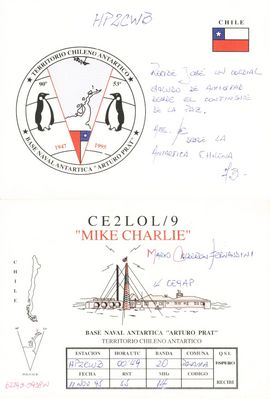 HP2CWB
CHILE
TERRITORIO CHILENO ANTARTICO
90°
53°
1947
1995
BASE NAVAL ANTARTICA "ARTURO PRAT"
RECIBE JOSÉ UN CORDIAL
SALUDO DE AMISTAD
DESDE EL CONTINENTE
DE LA PAZ.
DESDE LA
ANTARTICA CHILENA
CE2LOL/9
"MIKE CHARLIE"
MARIO CALDERON
CHILE
BASE NAVAL ANTARTICA "ARTURO PRAT"
TERRITORIO CHILENO ANTARTICO
ESTACION HORA UTC BANDA COMUNA Q.S.L.
HP2CWB 00:49 20 ESPERO
FECHA RST MHz CODIGO
11 NOV 95 14 RECIBI